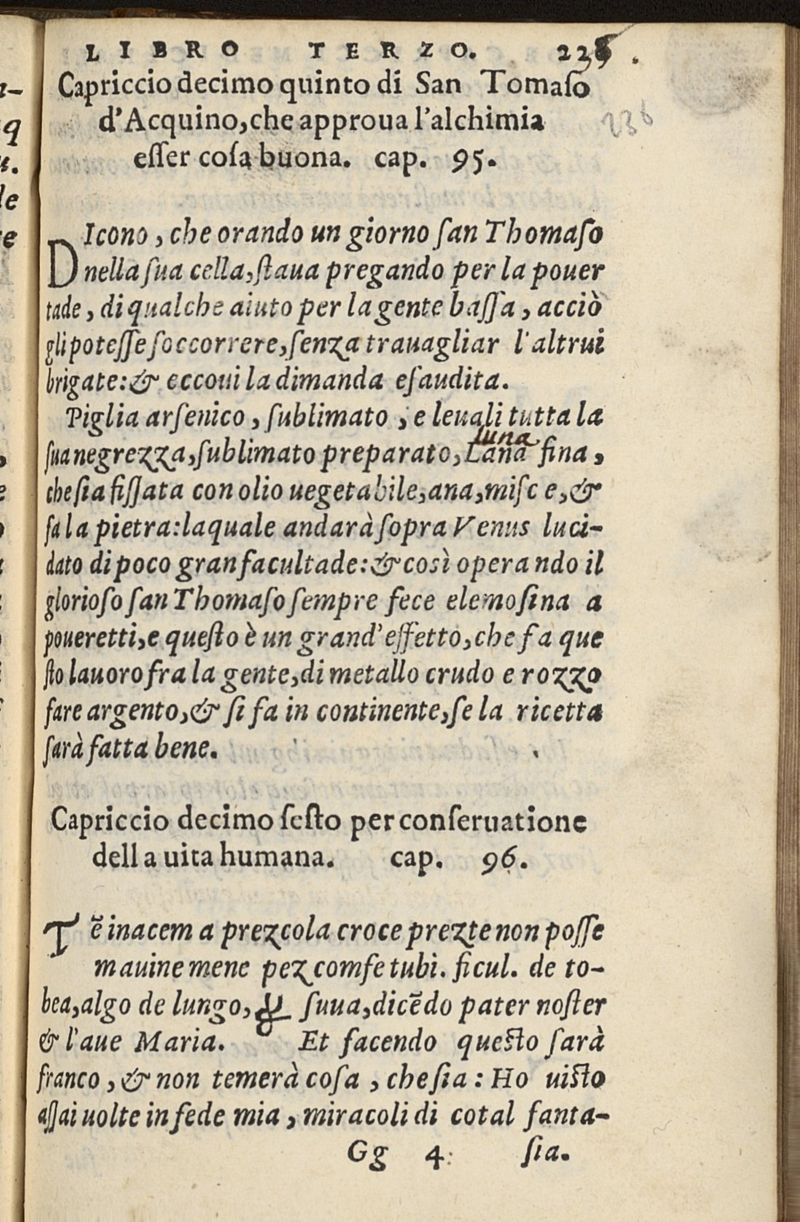 LIBRO TERZO. 
Capriccio decimo quinto di San Tomaſo
d'Acquino, che approua l'alchimia 236
eſſer coſa buona. cap. 95.
DIcono, che orando un giorno ſan Thomaſo
nella ſua cella, ſtaua pregando per la pouer
tade, di qualche aiuto per la gente baſſa, acciò
gli poteſſe ſoccorrere, ſenza trauagliar l'altrui
brigate: & eccoui la dimanda eſaudita.
Piglia arſenico, ſublimato, e leuali tutta la
luna
ſua negrezza, ſublimato preparato, Lana fina,
che ſia fiſſata con olio uegetabile, ana, miſc e, &
fa la pietra: laquale andarà ſopra Venus luci-
dato di poco gran facultade: & così opera ndo il
glorioſo ſan Thomaſo ſempre fece elemoſina a
poueretti, e queſto è un grand' effetto, che fa que
ſto lauoro fra la gente, di metallo crudo e rozzo
fare argento, & ſi fa in continente, ſe la ricetta
ſarà fatta bene.
Capriccio decimo ſeſto per conſeruatione
dell a uita humana. cap. 96.
Tẽ inacem a prezcola croce prezte non poſſe
mauine mene pez comfe tubi. ficul. de to-
bea, algo de lungo, ſuua, dicẽdo pater noſter
& l'aue Maria. Et facendo queſto ſarà
franco, & non temerà coſa, che ſia: Ho uiſto
aſſai uolte in fede mia, miracoli di cotal fanta-
Gg 4 ſia.